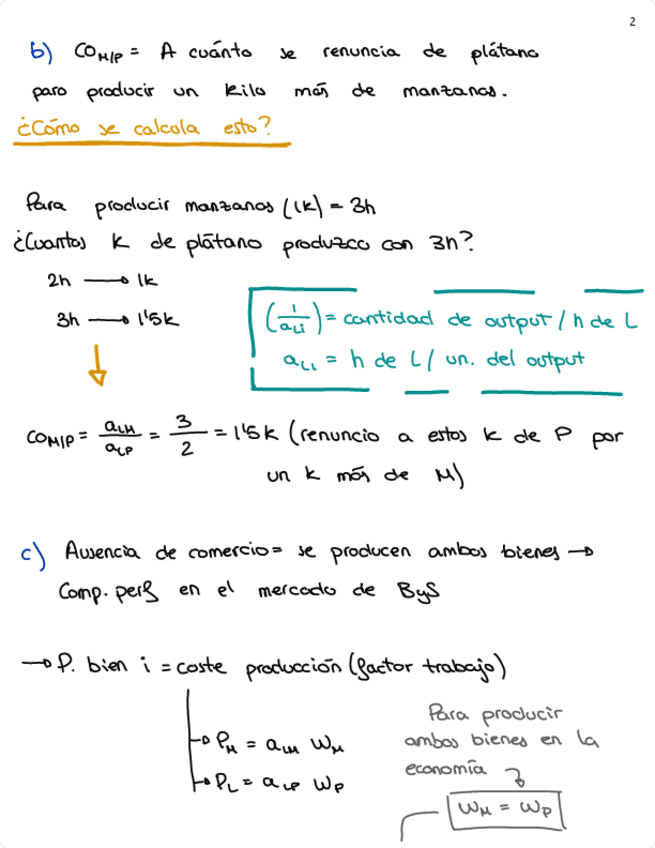 2
b) CO_M/P = A cuánto se renuncia de plátano
para producir un kilo más de manzanas.
¿Cómo se calcula esto?
Para producir manzanas (1k) = 3h
¿Cuantos k de plátano produzco con 3h?
2h → 1k
3h → 1'5k
(1/a_Li) = cantidad de output / h de L
a_Li = h de L / un. del output
CO_M/P = a_LM/a_LP = 3/2 = 1'5k (renuncio a estos k de P por
un k más de M)
c) Ausencia de comercio = se producen ambos bienes →
Comp. perf en el mercado de ByS
→ P. bien i = coste producción (factor trabajo)
→ P_M = a_LM W_M
→ P_L = a_LP W_P
Para producir
ambos bienes en la
economía
W_M = W_P